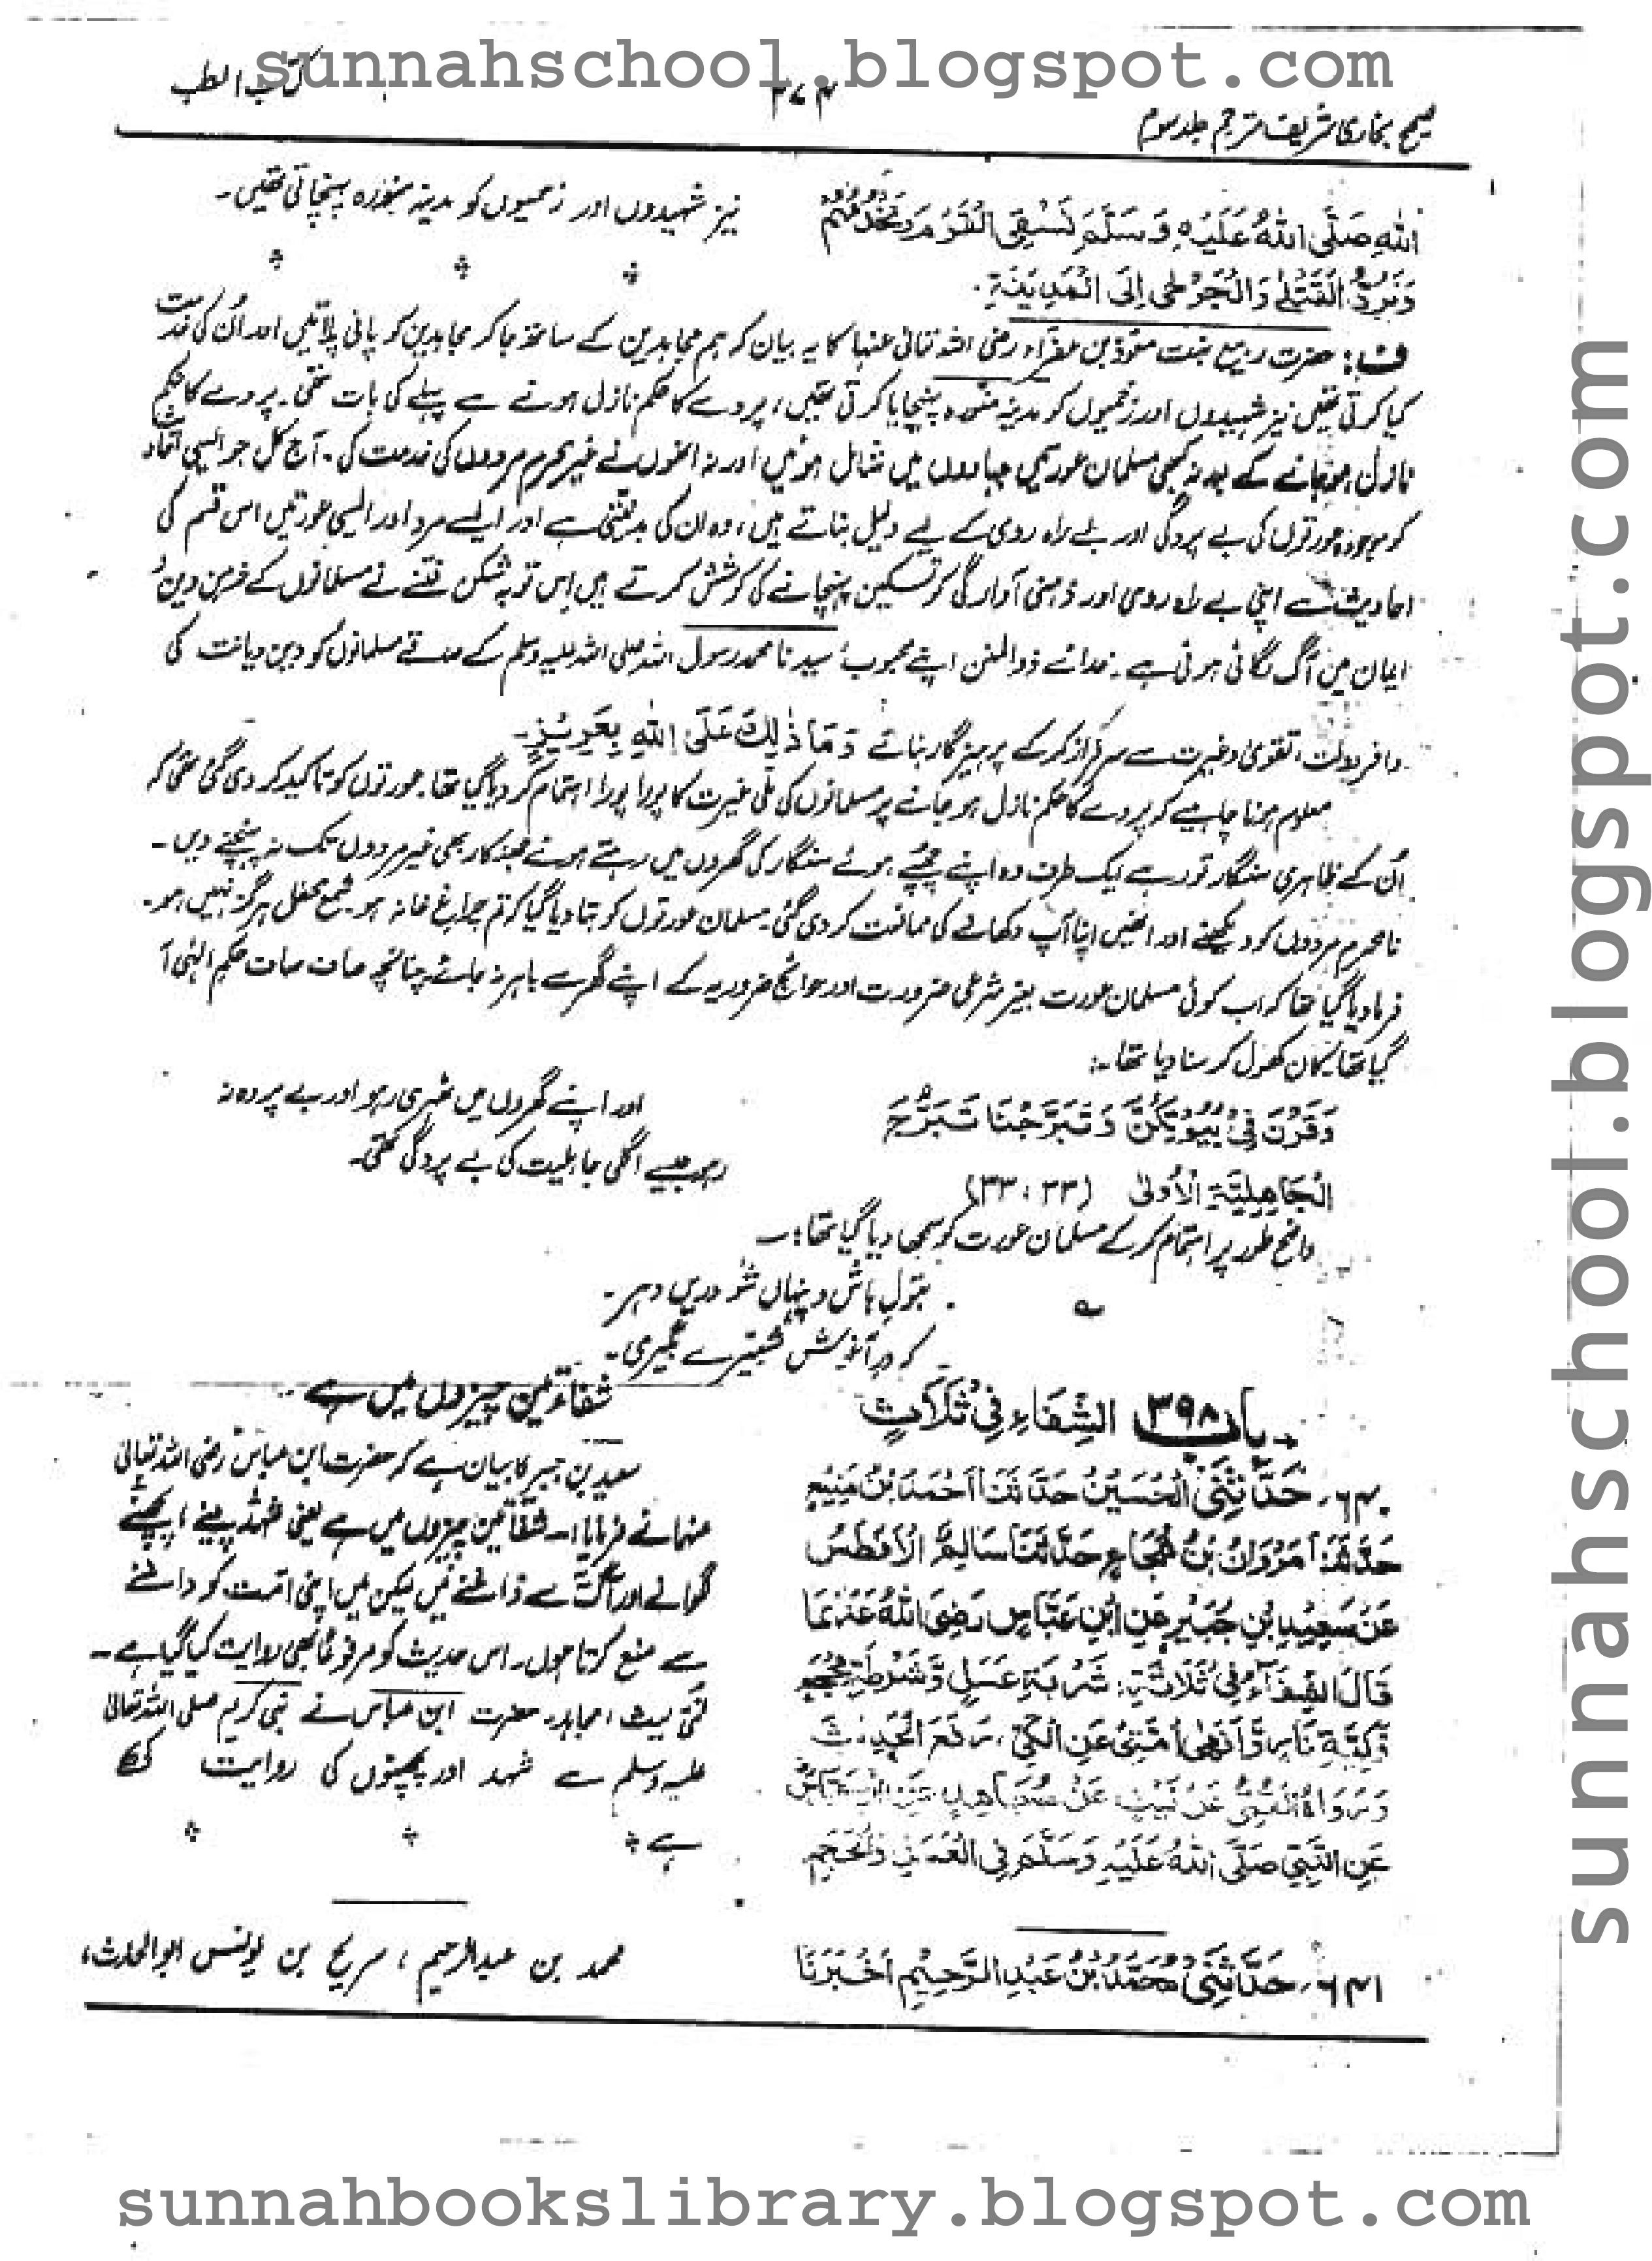 sunnahschool.blogspot.com
کتاب الطب
۲۷۴
صحیح بخاری شریف مترجم جلد سوم
اللهِ صَلَّى اللهُ عَلَيْهِ وَسَلَّمَ نَسْقِی الْقَوْمَ وَنَخْدُمُهُمْ
وَنَرُدُّ الْقَتْلٰی وَالْجَرْحٰی اِلَی الْمَدِیْنَةِ۔
نیز شہیدوں اور زخمیوں کو مدینہ منورہ پہنچاتی تھیں۔
ف: حضرت ربیع بنت معوذ بن عفراء رضی اللہ تعالیٰ عنہا کا یہ بیان کہ ہم مجاہدین کے ساتھ جا کر مجاہدین کو پانی پلاتیں اور اُن کی خدمت
کیا کرتی تھیں نیز شہیدوں اور زخمیوں کو مدینہ منورہ پہنچایا کرتی تھیں، پردے کا حکم نازل ہونے سے پہلے کی بات تھی۔ پردے کا حکم
نازل ہو جانے کے بعد نہ کبھی مسلمان عورتیں جہادوں میں شامل ہوئیں اور نہ انھوں نے غیر محرم مردوں کی خدمت کی۔ آج کل جو ایسی
کو موجودہ عورتوں کی بے پردگی اور بے راہ روی کے لیے دلیل بناتے ہیں، وہ ان کی ہے اور ایسے مرد اور ایسی عورتیں اس قسم کی
احادیث سے اپنی بے راہ روی اور ذہنی آوارگی کو تسکین پہنچانے کی کوشش کرتے ہیں اس توبہ شکن فتنے نے مسلمانوں کے خرمن دین و
ایمان میں آگ لگائی ہوئی ہے۔ خدائے ذوالمنن اپنے محبوب سیدنا محمد رسول اللہ صلی اللہ علیہ وسلم کے صدقے مسلمانوں کو دین دیانت کی
وافر دولت، تقویٰ و غیرت سے سرفراز کر کے پرہیزگار بنائے وَمَا ذٰلِكَ عَلَى اللهِ بِعَزِيْزٍ۔
معلوم ہونا چاہیے کہ پردے کا حکم نازل ہو جانے پر مسلمانوں کی ملی غیرت کا پورا پورا اہتمام کر دیا گیا تھا۔ عورتوں کو تاکید کر دی گئی تھی کہ
اُن کے ظاہری سنگار تو رہے ایک طرف وہ اپنے چھپے ہوئے سنگار کی گھروں میں رہتے ہوئے جھنکار بھی غیر مردوں تک نہ پہنچنے دیں۔
نامحرم مردوں کو دیکھنے اور انھیں اپنا آپ دکھانے کی ممانعت کر دی گئی۔ مسلمان عورتوں کو بتا دیا گیا کہ تم چراغِ خانہ ہو۔ شمع محفل ہرگز نہیں ہو۔
فرما دیا گیا تھا کہ اب کوئی مسلمان عورت بغیر شرعی ضرورت اور حوائج ضروریہ کے اپنے گھر سے باہر نہ جائے چنانچہ صاف صاف حکمِ الٰہی آ
گیا تھا کان کھول کر سنا دیا تھا:
وَقَرْنَ فِیْ بُیُوْتِكُنَّ وَ تَبَرَّجْنَا تَبَرُّجَ
الْجَاهِلِیَّةِ الْاُوْلٰی (۳۳:۳۳)
اور اپنے گھروں میں ٹھہری رہو اور بے پردہ نہ
رہو جیسے اگلی جاہلیت کی بے پردگی تھی۔
واضح طور پر اہتمام کر کے مسلمان عورت کو سمجھا دیا گیا تھا:
بتول باش و پنہاں شو دریں دہر۔
کہ در آغوش شبیرے بگیری۔
باب ۳۹۸ الشِّفَاءِ فِیْ ثَلَاثٍ
شفاء تین چیزوں میں ہے
۶۴۰۔ حَدَّثَنِی الْحُسَیْنُ حَدَّثَنَا اَحْمَدُ بْنُ مَنِیْعٍ
حَدَّثَنَا مَرْوَانُ بْنُ شُجَاعٍ حَدَّثَنَا سَالِمٌ الْاَفْطَسُ
عَنْ سَعِیْدِ بْنِ جُبَیْرٍ عَنِ ابْنِ عَبَّاسٍ رَضِیَ اللهُ عَنْهُمَا
قَالَ الشِّفَآءُ فِیْ ثَلَاثَةٍ: شَرْبَةِ عَسَلٍ وَّشَرْطَةِ مِحْجَمٍ
وَّكَیَّةِ نَارٍ وَّاَنْهٰی اُمَّتِیْ عَنِ الْكَیِّ، رَفَعَ الْحَدِیْثَ
وَرَوَاهُ الْقُمِّیُّ عَنْ لَیْثٍ عَنْ مُجَاهِدٍ عَنِ ابْنِ عَبَّاسٍ
عَنِ النَّبِیِّ صَلَّى اللهُ عَلَیْهِ وَسَلَّمَ فِی الْعَسَلِ وَالْحَجْمِ
سعید بن جبیر کا بیان ہے کہ حضرت ابن عباس رضی اللہ تعالیٰ
عنہما نے فرمایا: شفا تین چیزوں میں ہے یعنی شہد پینے، پچھنے
لگوانے اور آگ سے داغنے میں لیکن میں اپنی امت کو داغنے
سے منع کرتا ہوں۔ اس حدیث کو مرفوعاً بھی روایت کیا گیا ہے۔
قمی لیث، مجاہد، حضرت ابن عباس نے نبی کریم صلی اللہ تعالیٰ
علیہ وسلم سے شہد اور پچھنوں کی روایت کی
ہے
۶۴۱۔ حَدَّثَنِیْ مُحَمَّدُ بْنُ عَبْدِ الرَّحِیْمِ اَخْبَرَنَا
محمد بن عبدالرحیم، سریج بن یونس ابو الحارث،
sunnahschool.blogspot.com
sunnahbookslibrary.blogspot.com